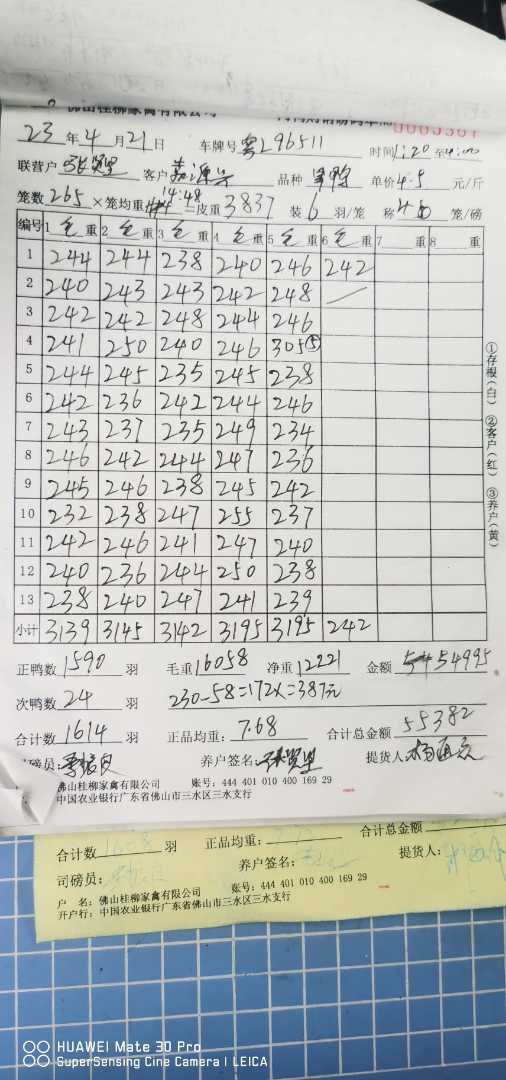 佛山桂柳家禽有限公司
23年4月21日 车牌号 粤L96511 时间1:20至4:00
联营户 张贤坚 客户 嘉源兴 品种 单价4.5元/斤
笼数265×笼均重14.48=皮重3837 装6羽/笼 称 笼/磅
编号 1 毛重 2 毛重 3 毛重 4 毛重 5 毛重 6 毛重 7 重 8 重
1 244 244 238 240 246 242
2 240 243 243 242 248 /
3 242 242 248 244 246
4 241 250 240 246 305⑤
5 244 245 235 245 238
6 242 236 242 244 246
7 243 237 235 249 234
8 246 242 244 247 236
9 245 246 238 245 242
10 232 238 247 255 237
11 242 246 241 247 240
12 240 236 244 250 238
13 238 240 247 241 239
小计 3139 3145 3142 3195 3195 242
①存根(白) ②客户(红) ③养户(黄)
正鸭数1590羽 毛重16058 净重12221 金额 54995
次鸭数24羽 230-58=172×=387元
合计数1614羽 正品均重:7.68 合计总金额55382
司磅员: 养户签名:张贤坚 提货人
佛山桂柳家禽有限公司 账号:444 401 010 400 169 29
中国农业银行广东省佛山市三水区三水支行
合计数 羽 正品均重: 合计总金额
司磅员: 养户签名: 提货人:
户 名:佛山桂柳家禽有限公司 账号:444 401 010 400 169 29
开户行:中国农业银行广东省佛山市三水区三水支行
HUAWEI Mate 30 Pro
SuperSensing Cine Camera | LEICA